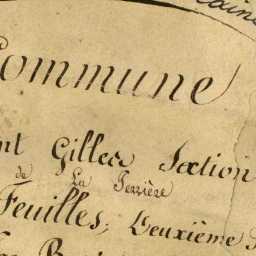 Commune
Gilles Section
de La Ferrière
Feuilles, Deuxième